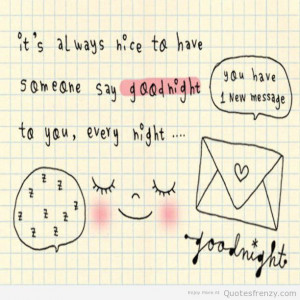 it's always nice to have
someone say goodnight
to you, every night ....
you have
1 new message
z z
z z z
z z
z z
goodnight
QuotesFrenzy.com